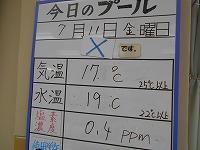 今日のプール
7月11日 金曜日
× です。
気温 17.℃ 25℃以上
水温 19℃ 22℃以上
塩素濃度 0.4 ppm